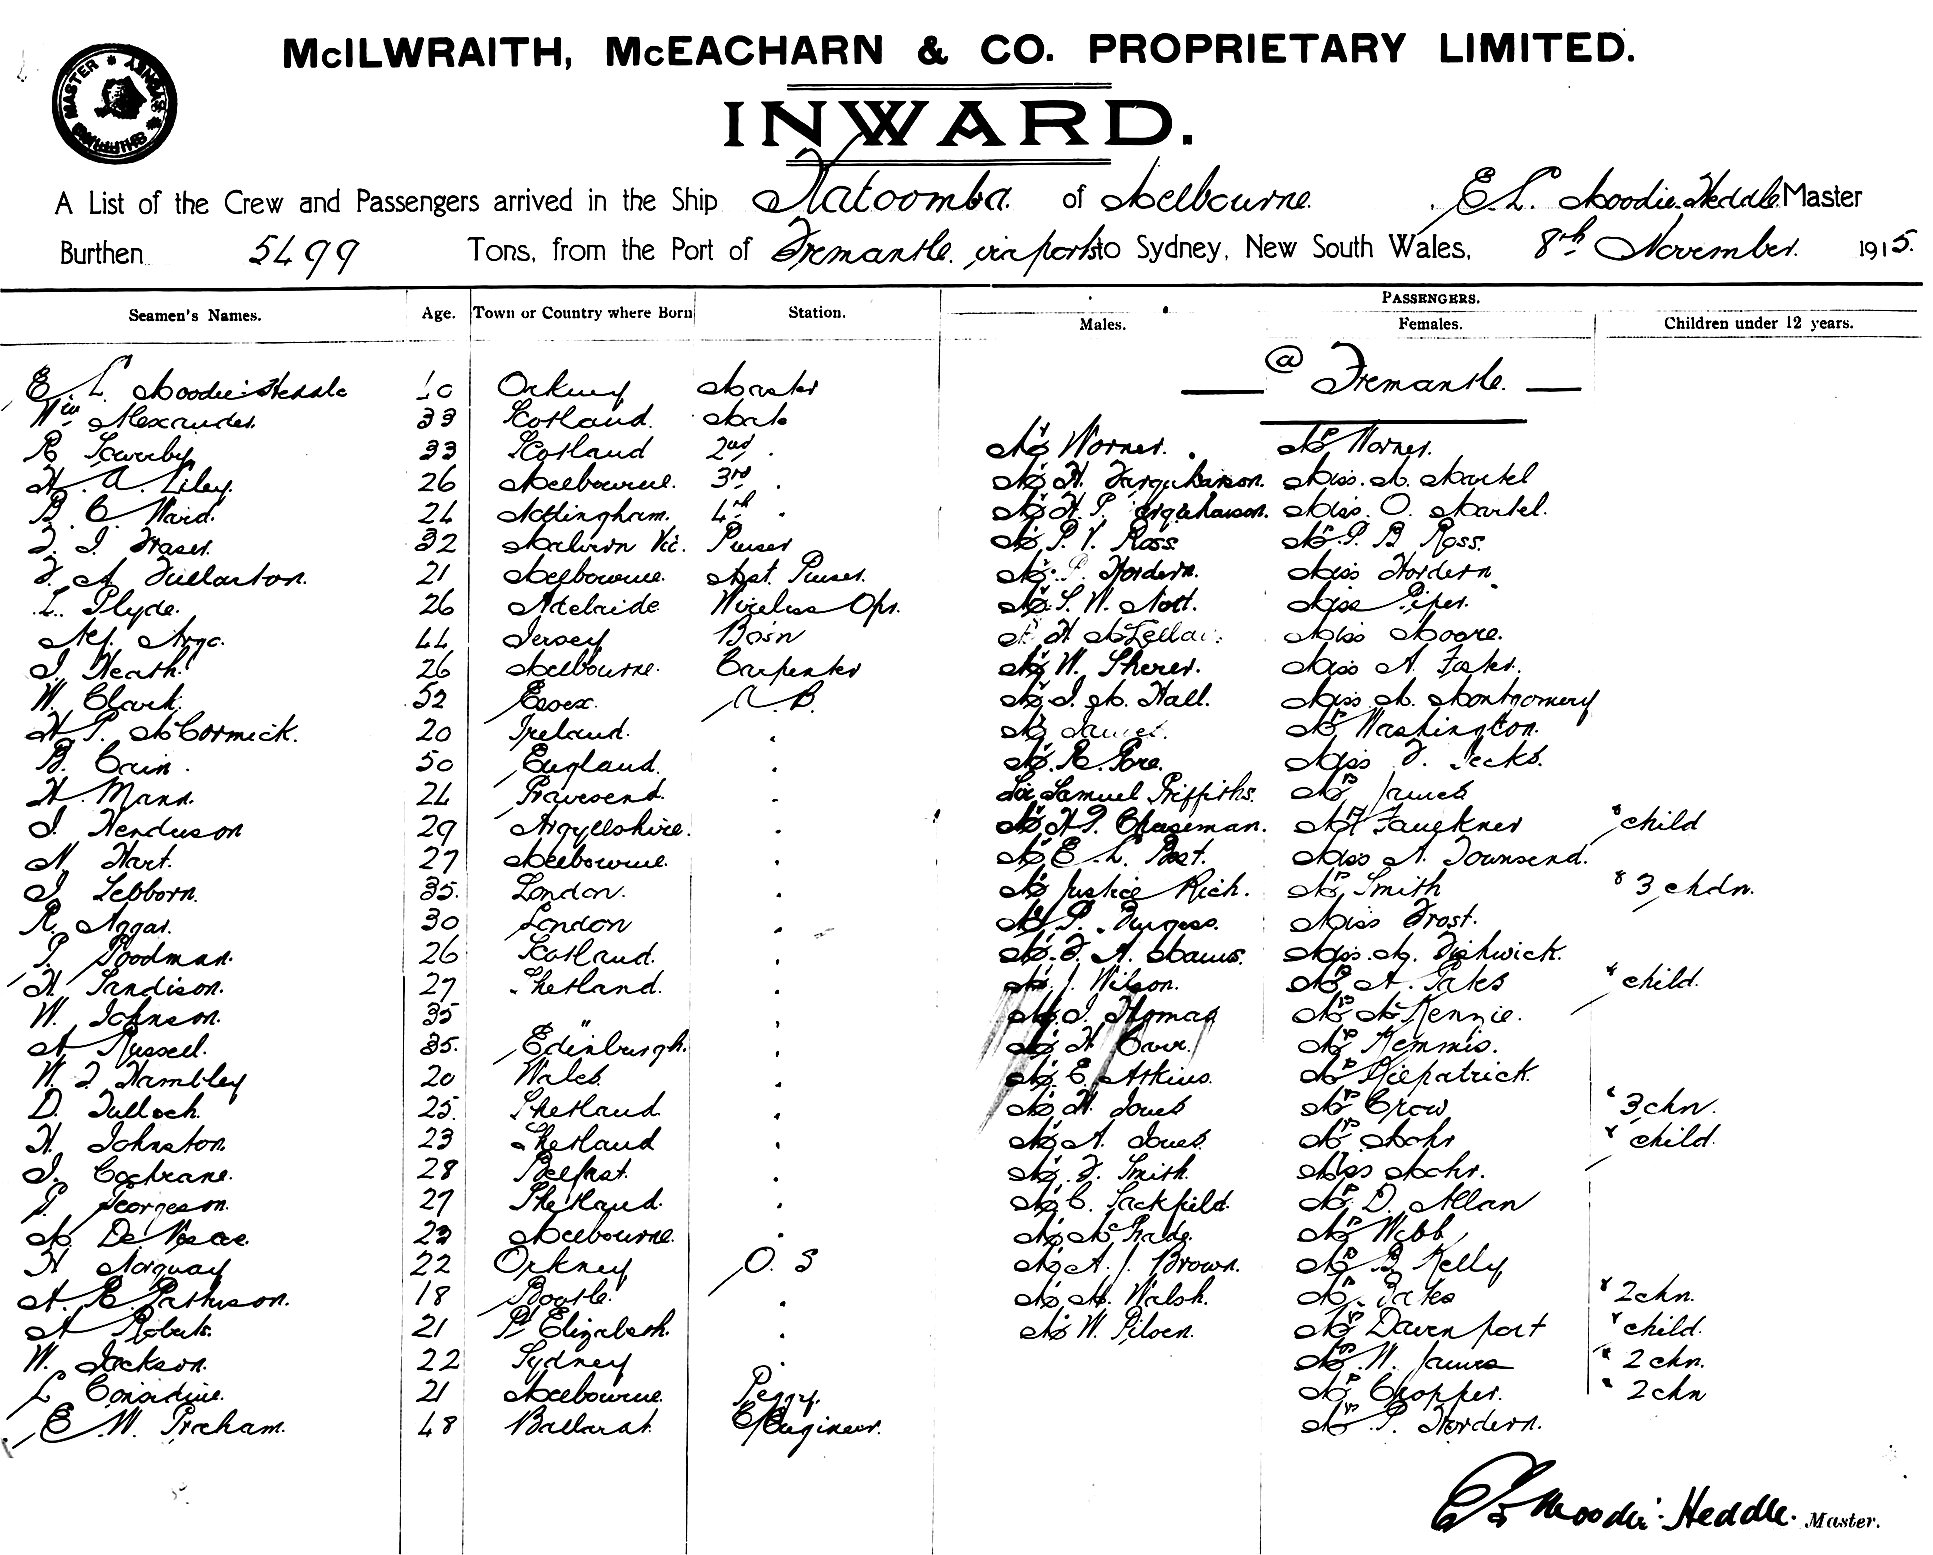 McILWRAITH, McEACHARN & CO. PROPRIETARY LIMITED.
SHIPPING MASTER * SYDNEY *
INWARD.
A List of the Crew and Passengers arrived in the Ship Katoomba of Melbourne. E. L. Moodie Heddle Master
Burthen 5499 Tons, from the Port of Fremantle. via ports to Sydney, New South Wales, 8th November. 1915.
PASSENGERS.
Seamen's Names. Age. Town or Country where Born Station. Males. Females. Children under 12 years.
@ Fremantle.
E L Moodie-Heddle Orkney Master
Wm Alexander. 33 Scotland. Mate
R Sowerby 33 Scotland 2nd . Mr Worner. Mrs Worner.
H. A. Liley. 26 Melbourne. 3rd . Mr H. Farquharson. Miss. M. Martel
B C Ward. 24 Nottingham. 4th . Mr H P. Farquharson. Miss. O. Martel.
F. J. Fraser. 32 Malvern Vic. Purser Mr P. V. Ross Mrs. P B Ross.
F. M Fullarton. 21 Melbourne. Asst. Purser. Mr. Hordern. Miss Hordern
L. Plyde. 26 Adelaide Wireless Opr. Mr. S. W. Nott. Miss Piper.
Argo. 44 Jersey Bosn H McLellan Miss Moore.
J. Heath. 26 Melbourne. Carpenter Mr W. Sherer. Miss A.
W. Clark. 52 Essex. A. B. Mr J. M. Hall. Miss M. Montgomery
H P. McCormick. 20 Ireland. . Mr James. Mrs Washington.
B. Cain. 50 England. . Mr. R. Gore. Miss F. Jecks.
H. Mann. 24 Gravesend. . Sir Samuel Griffiths. Mrs James
J. Henderson 29 Argyllshire. . Mr H J. Cheeseman. Mrs Faulkner & child
N. Hart. 27 Melbourne. . Mr E. L. Miss A. Townsend.
J. Lebborn. 35. London. . Mr Justice Rich. Mrs Smith & 3 chdn.
R. Aggas. 30 London . Mr P. Burgess. Miss Frost.
P. Goodman. 26 Scotland. . Mr. F. A. Miss. M. Fishwick.
H Sandison. 27 Shetland. . Mr. J. Wilson. Mrs A. Yates & child.
W. Johnson. 35 " . Mr. J. Thomas Mrs McKennie.
A Russell. 35. Edinburgh. . Mr H Carr. Mrs Kemmis.
W. J. Hambley 20 Wales. . Mr. E. Atkins. Mrs Kilpatrick.
D. Tulloch. 25. Shetland . Mr H. Jones Mrs Crow & 3 chn.
H. Johnston. 23 Shetland . Mr A. Jones. Mrs Mohr & child.
J. Cochrane. 28 Belfast. . Mr. F. Smith. Miss Mohr.
Georgeson. 27 Shetland. . Mr C. Sackfield. Mrs D. Allan
M. De 23 Melbourne. . Mr McGrade. Mrs Webb
H Norquay 22 Orkney O. S Mr A. J. Brown. Mrs B Kelly
A. E. Patterson. 18 Bootle. . Mr M. Walsh. Mrs. & 2 chn.
A Roberts. 21 Pt Elizabeth. . Mr W. Pilven. Mrs Davenport & child.
W. Jackson. 22 Sydney . Mrs. W. James & 2 chn.
L Considine. 21 Melbourne. Peggy. Mrs Chopper. & 2 chn
E W. Graham. 48 Ballarat. C/Engineer. Mrs P. Hordern.
E L Moodie-Heddle. Master.